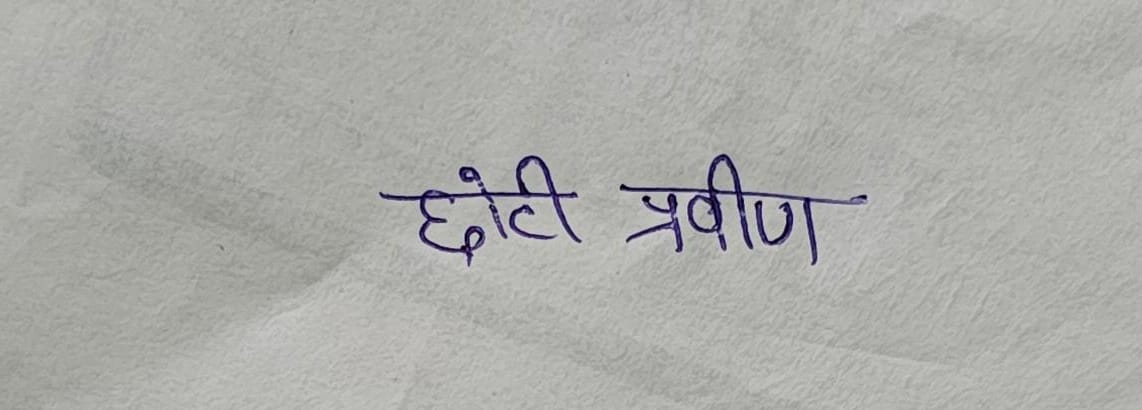 छोटी प्रवीण